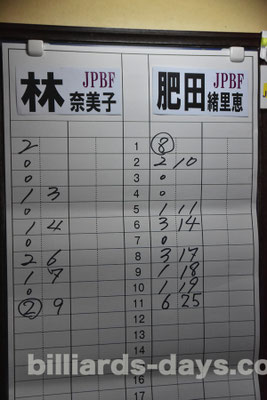 林 JPBF 奈美子 肥田 JPBF 緒里恵
2 1 ⑧
0 2 2 10
0 3 0
1 3 4 0
0 5 1 11
1 4 6 3 14
0 7 0
2 6 8 3 17
1 7 9 1 18
0 10 1 19
② 9 11 6 25
12
13
14
15
billiards-days.com
16
17